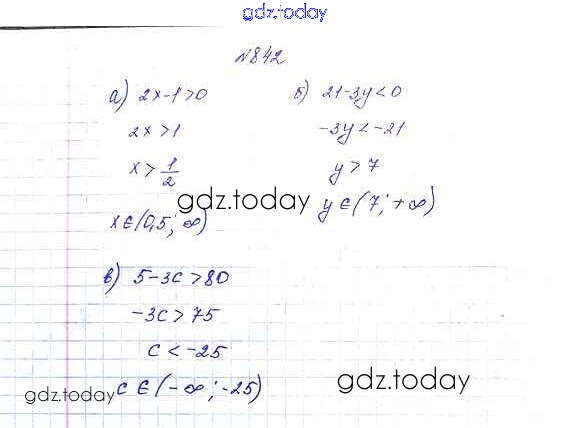 gdz.today
№842
а) 2x-1>0
2x>1
x>1/2
x∈(0,5; ∞)
б) 21-3y<0
-3y<-21
y>7
y∈(7; +∞)
gdz.today
в) 5-3c>80
-3c>75
c<-25
c∈(-∞; -25)
gdz.today
gdz.today